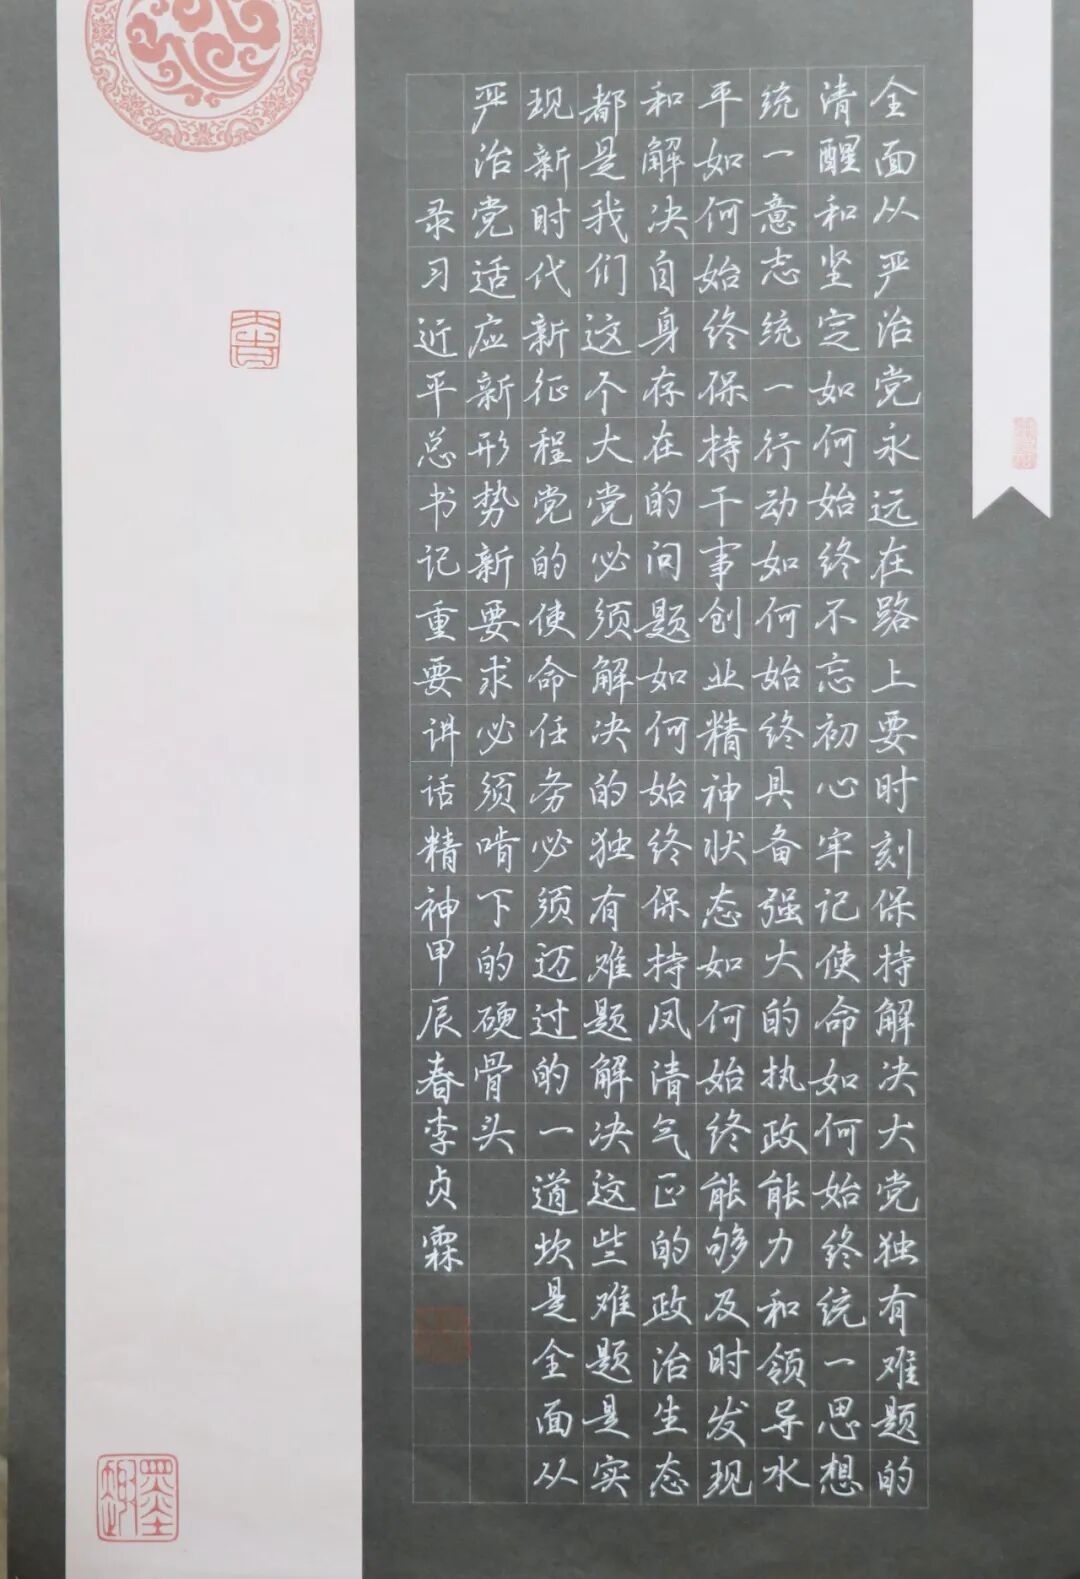 全面从严治党永远在路上要时刻保持解决大党独有难题的
清醒和坚定如何始终不忘初心牢记使命如何始终统一思想
统一意志统一行动如何始终具备强大的执政能力和领导水
平如何始终保持干事创业精神状态如何始终能够及时发现
和解决自身存在的问题如何始终保持风清气正的政治生态
都是我们这个大党必须解决的独有难题解决这些难题是实
现新时代新征程党的使命任务必须迈过的一道坎是全面从
严治党适应新形势新要求必须啃下的硬骨头
录习近平总书记重要讲话精神甲辰春李贞霖
墨趣